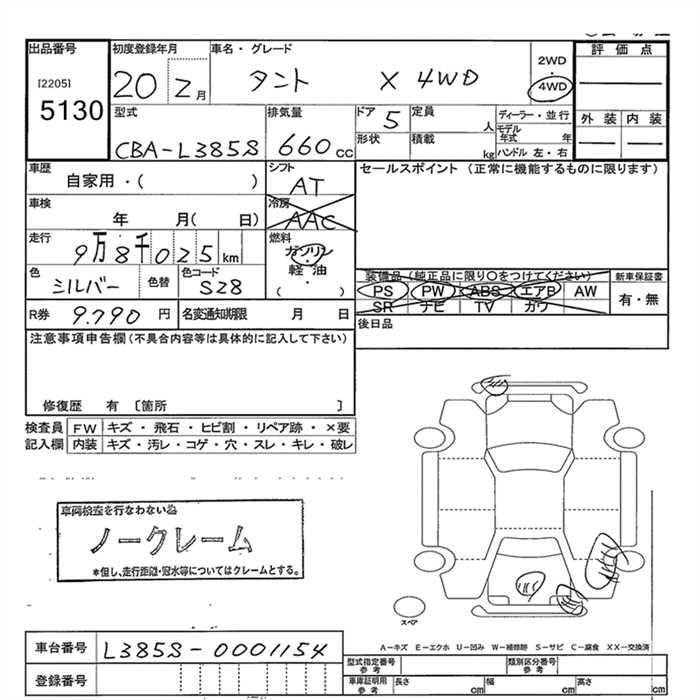 出品番号
[2205]
5130
初度登録年月
20 2月
車名・グレード
タント X 4WD
2WD
・
4WD
評価点
外装 内装
型式
CBA-L385S
排気量
660 cc
ドア
5
定員
人
形状
積載
kg
ディーラー・並行
モデル年式 年
ハンドル 左・右
車歴
自家用・( )
シフト
AT
セールスポイント (正常に機能するものに限ります)
車検
年 月( 日)
冷房
AAC
走行
9万8千025km
燃料
ガソリン
・
軽油
( )
色
シルバー
色替
色コード
S28
装備品 (純正品に限り○をつけてください)
PS PW ABS エアB AW
SR ナビ TV カワ
新車保証書
有・無
R券 9.790 円
名変通知期限 月 日
後日品
注意事項申告欄(不具合内容等は具体的に記入して下さい)
修復歴 有 〔箇所 〕
検査員記入欄
FW キズ・飛石・ヒビ割・リペア跡・×要
内装 キズ・汚レ・コゲ・穴・スレ・キレ・破レ
車両検査を行なわない為
ノークレーム
*但し、走行距離・冠水等についてはクレームとする。
スペア
A-キズ E-エクボ U-凹み W-補修跡 S-サビ C-腐食 XX-交換済
車台番号 L385S-0001154
登録番号
型式指定番号
参考
類別区分番号
参考
車庫証明用
参考
長さ cm 幅 cm 高さ cm